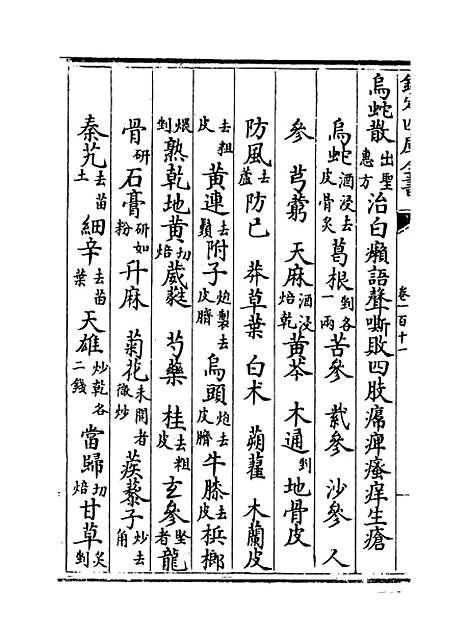 欽定四庫全書
卷一百十一
烏蛇散出聖惠方治白癩語聲嘶敗四肢𤸷痺瘙痒生瘡
烏蛇酒浸去皮骨炙葛根剉各一兩苦參 紫參 沙參 人
參 芎藭 天麻酒浸焙乾黃芩 木通剉地骨皮
防風去蘆防已 莽草葉 白朮 蒴藋 木蘭皮
去粗皮黃連去鬚附子炮製去皮臍烏頭炮去皮臍牛膝去皮梹榔
煨剉熟乾地黃切焙葳蕤 芍藥 桂去粗皮玄參堅者龍
骨研石膏研如粉升麻 菊花未開者微炒蒺藜子炒去角
秦艽去苗土細辛去苗葉天雄炒乾各二錢當歸切焙甘草炙剉